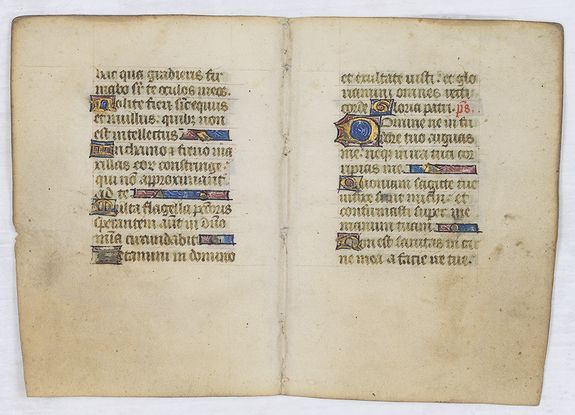 hac qua gradieris fir
mabo sr te oculos meos.
Nolite fieri sic equis
et mullus. quibz non
est intellectus
In chamo z freno ma
xillas eor constringe:
qui nō approximant
ad te
Multa flagella pctoris
sperantem aut in dno
mīa circundabit
Letamini in domino
et exultate iusti: et glo
riamini omnes recti
corde Gloria patri. ps.
Domine ne in fu
rore tuo arguas
me. neqz in ira tua cor
ripias me.
Quoniam sagitte tue
infixe sunt michi: et
confirmasti super me
manum tuam.
Non est sanitas in car
ne mea a facie ire tue.